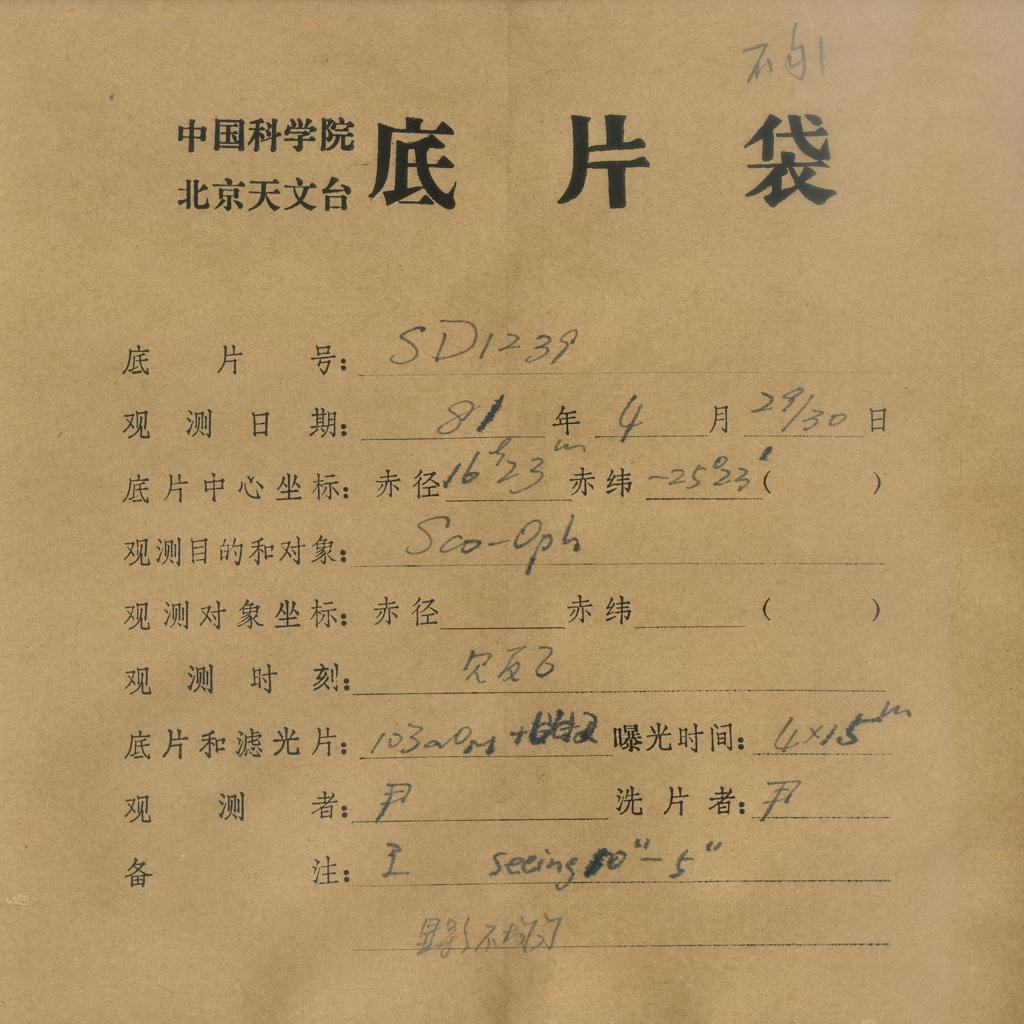 不均
中国科学院
北京天文台
底片袋
底片号：SD1239
观测日期：81年4月29/30日
底片中心坐标：赤径16h23m赤纬-25°23′( )
观测目的和对象：Sco-Oph
观测对象坐标：赤径 赤纬 ( )
观测时刻：
底片和滤光片：103aO 曝光时间：4×15m
观测者：尹 洗片者：尹
备注：I seeing 10"-5"
显影不均匀